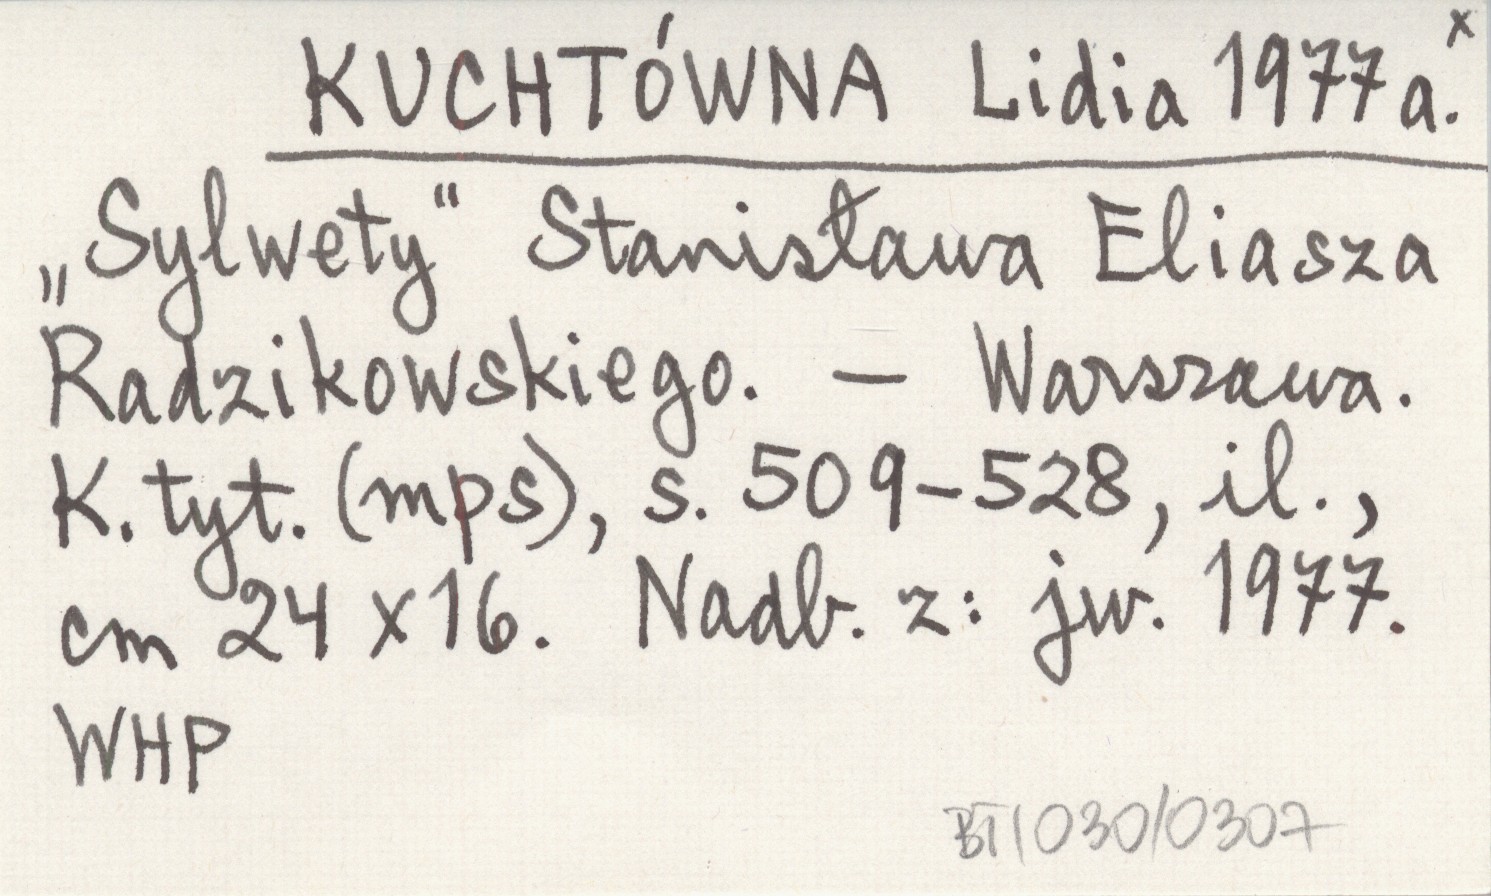 KUCHTÓWNA Lidia 1977a.x
„Sylwety“ Stanisława Eliasza
Radzikowskiego. – Warszawa.
K. tyt. (mps), s. 509–528, il.,
cm 24 x 16. Nadb. z: jw. 1977.
WHP
BT/030/0307